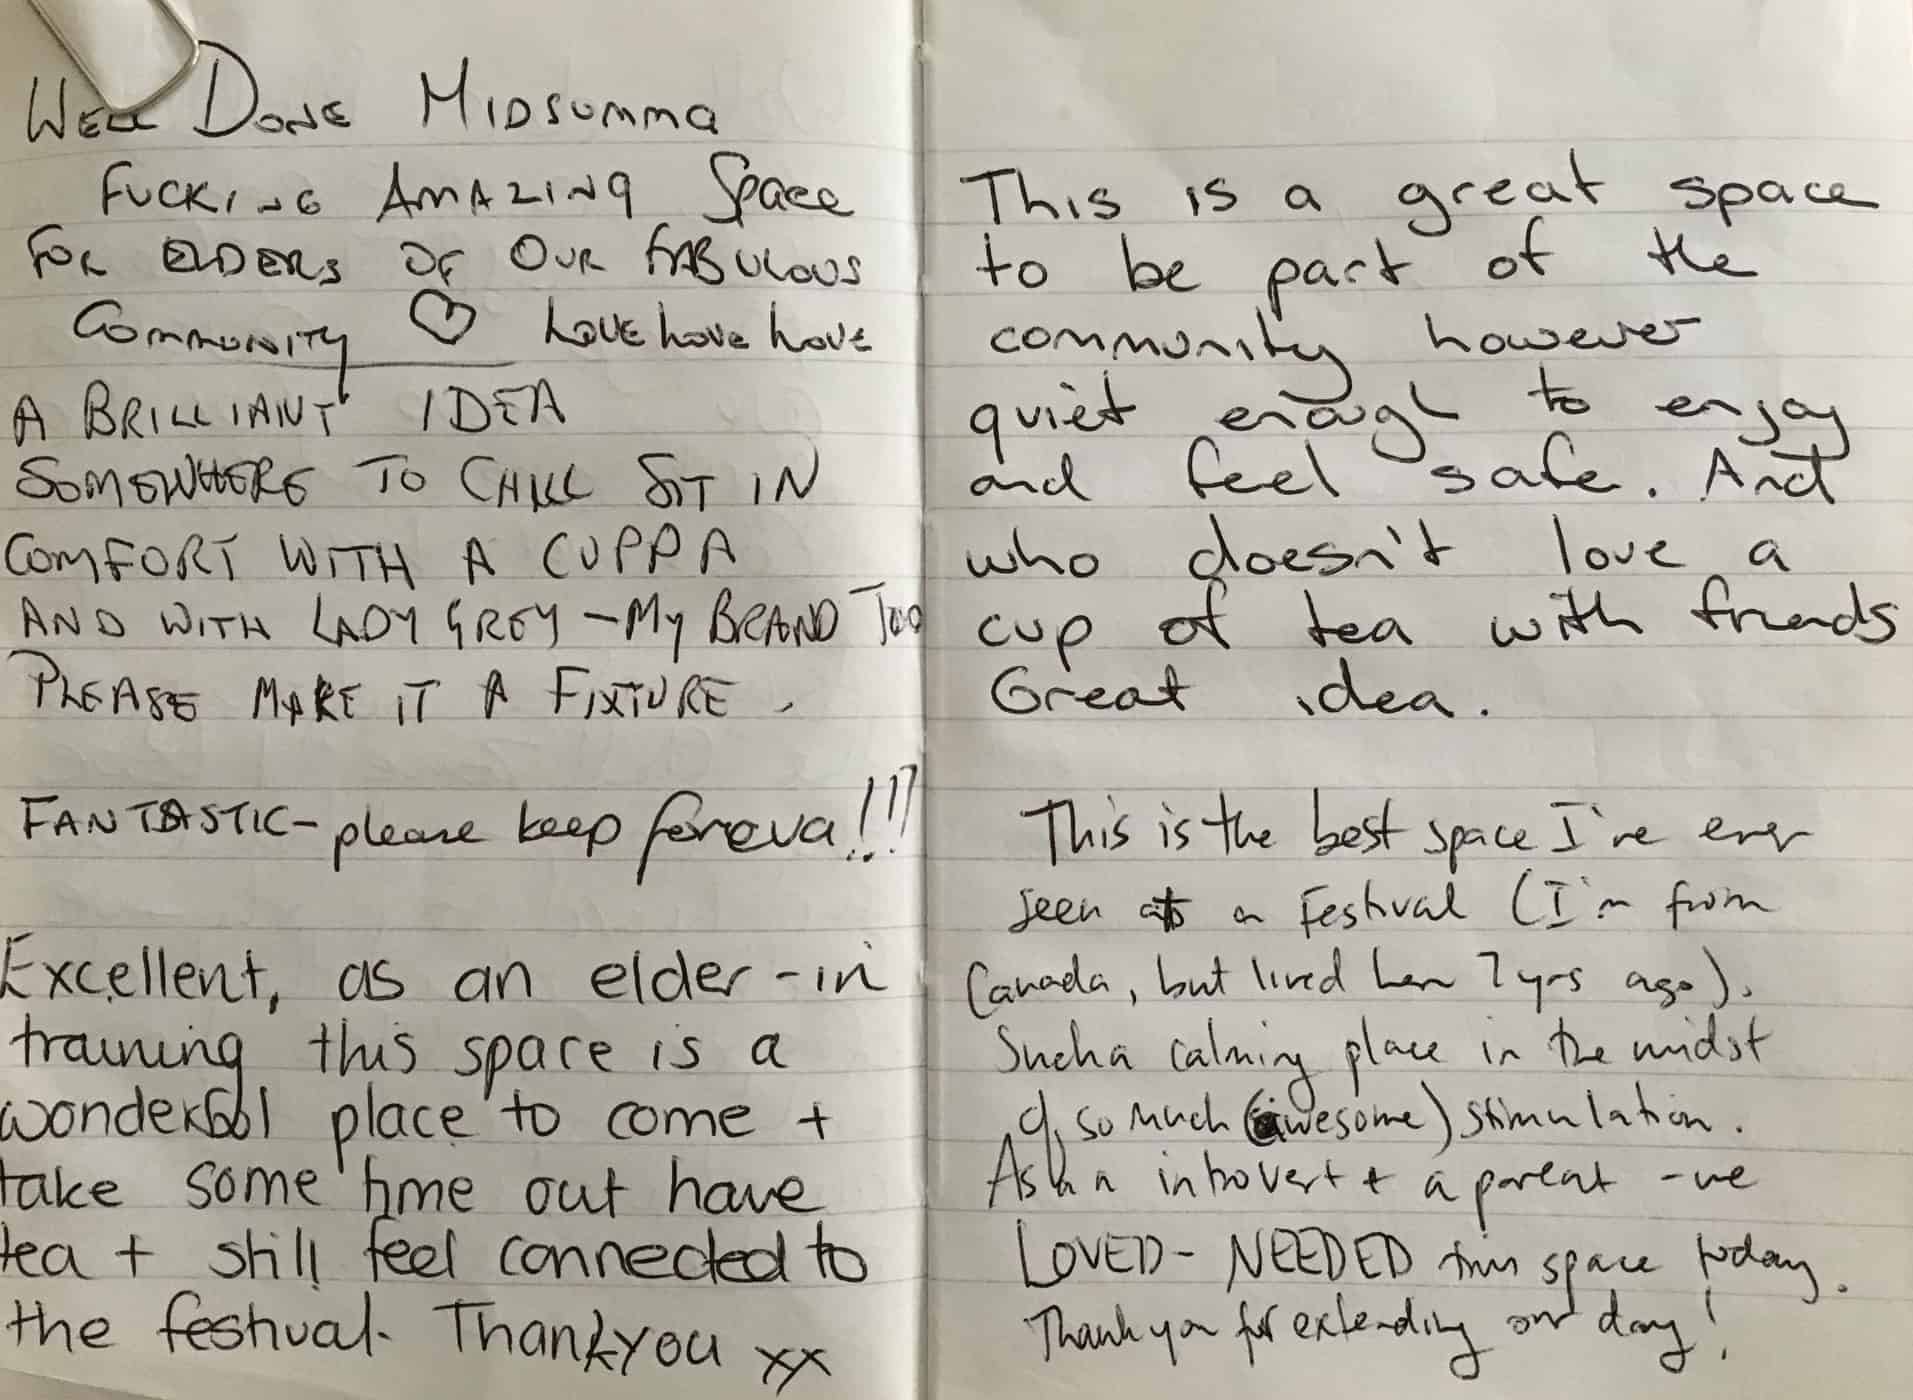 WELL DONE MIDSUMMA
FUCKING AMAZING Space
FOR ELDERS OF OUR FABULOUS
COMMUNITY ♡ LOVE LOVE LOVE
A BRILLIANT IDEA
SOMEWHERE TO CHILL SIT IN
COMFORT WITH A CUPPA
AND WITH LADY GREY – MY BRAND TOO
PLEASE MAKE IT A FIXTURE.
FANTASTIC – please keep foreva!!!
Excellent, as an elder-in
training this space is a
wonderful place to come +
take some time out have
tea + still feel connected to
the festival. Thankyou xx
This is a great space
to be part of the
community however
quiet enough to enjoy
and feel safe. And
who doesn't love a
cup of tea with friends
Great idea.
This is the best space I've ever
seen at a Festival (I'm from
Canada, but lived here 7 yrs ago).
Such a calming place in the midst
of so much (awesome) stimulation.
As an introvert + a parent - we
LOVED - NEEDED this space today.
Thank you for extending our day!